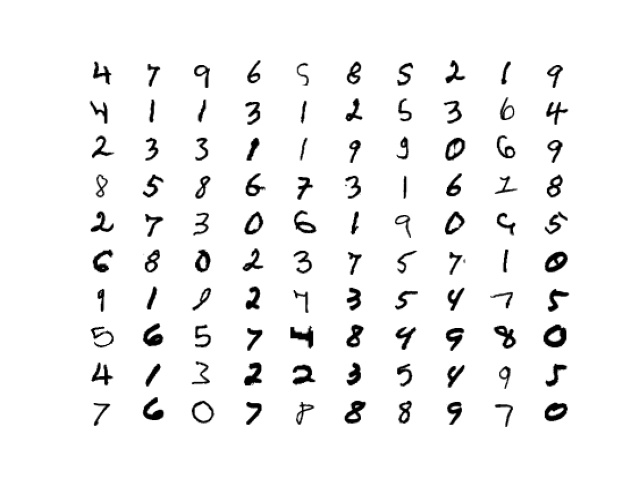 4 7 9 6 5 8 5 2 1 9
4 1 1 3 1 2 5 3 6 4
2 3 3 1 1 9 9 0 6 9
8 5 8 6 7 3 1 6 1 8
2 7 3 0 6 1 9 0 9 5
6 8 0 2 3 7 5 7 1 0
9 1 2 7 3 5 4 7 5
5 6 5 7 4 8 4 9 8 0
4 1 3 2 2 3 5 4 9 5
7 6 0 7 8 8 8 9 7 0